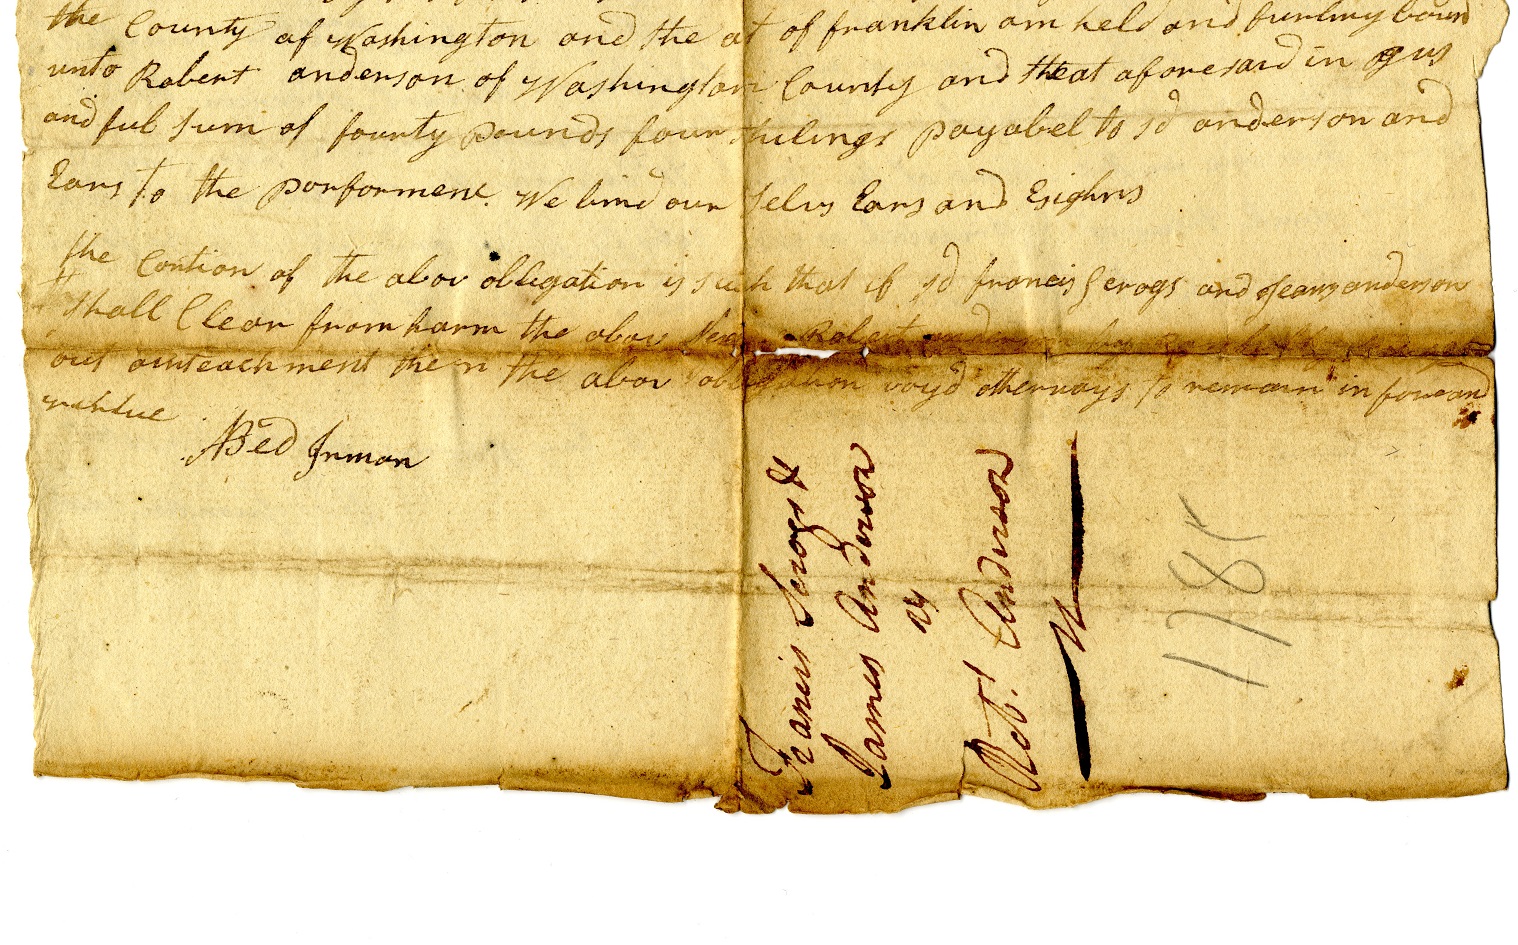 the County of Washington and the at of franklin am held and firmly boun
unto Robert anderson of Washington County and theat aforesaid in gus
and ful sum of fourty pounds four shilings payabel to sd anderson and
Ears to the porforment We bind our selvs Ears and Esighns
the Contion of the abov obligation is such that if sd francis Scrogs and Jeams anderson
shall Clear from harm the abov Robert
out auteachment then the abov obligation voyd otherways to remain in force and
vartue
ABed Inman
Francis Scrogs &
James Anderson
vs
Robt. Anderson
N
1785